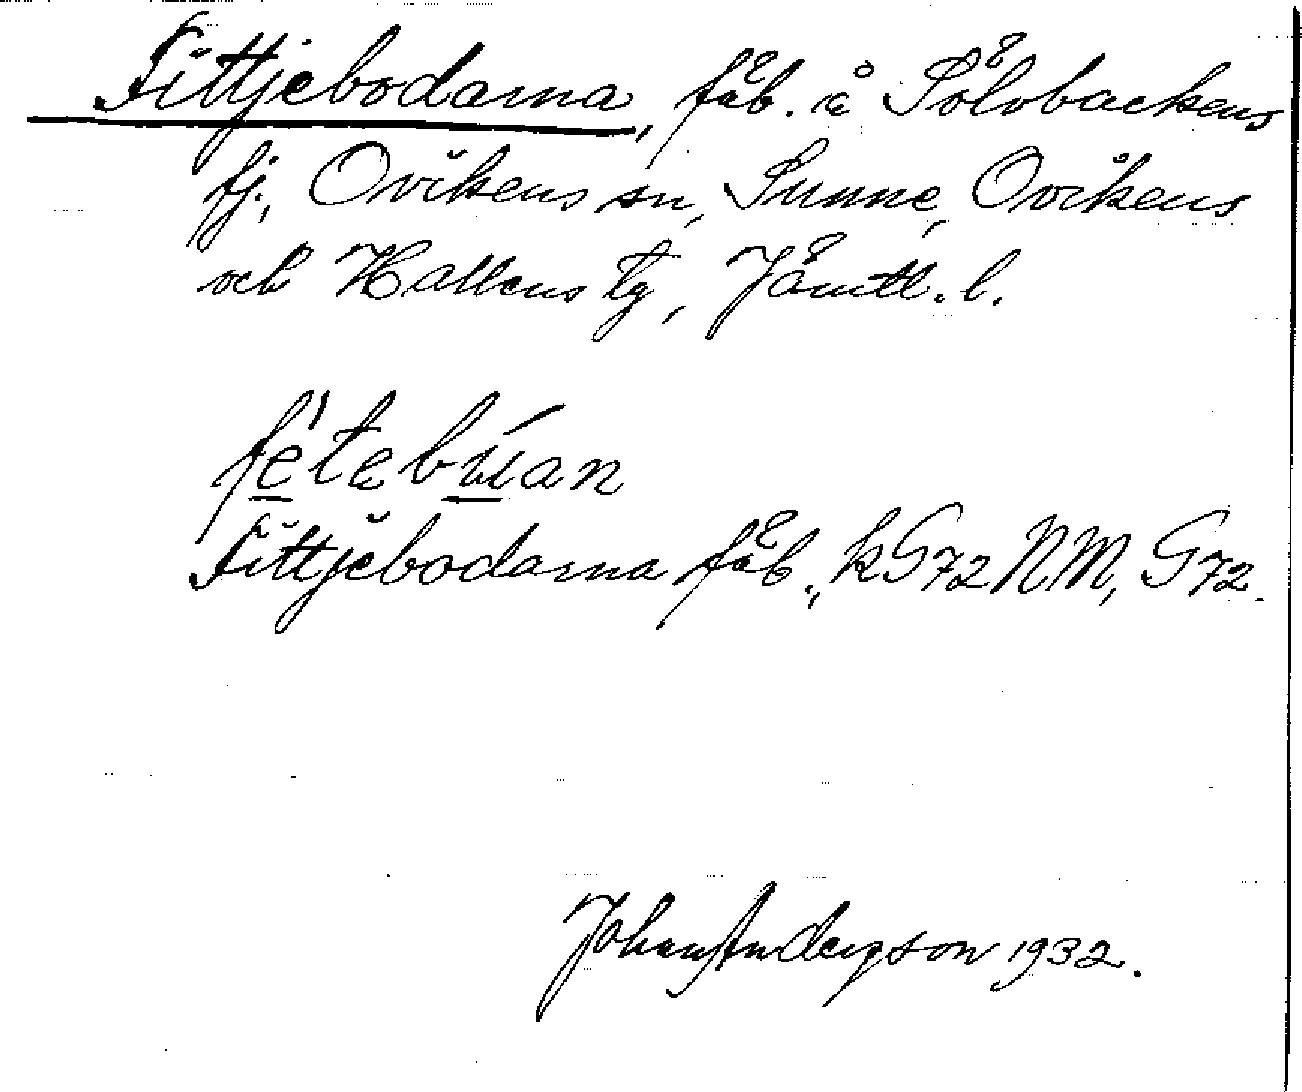 Fittjebodarna, fäb. å Sölvbackens
fj., Ovikens sn, Sunne, Ovikens
och Hallens tg, Jämtl. l.
fetebúan
Fittjebodarna fäb., k G72 NM, G72.
Johan Anderson 1932.